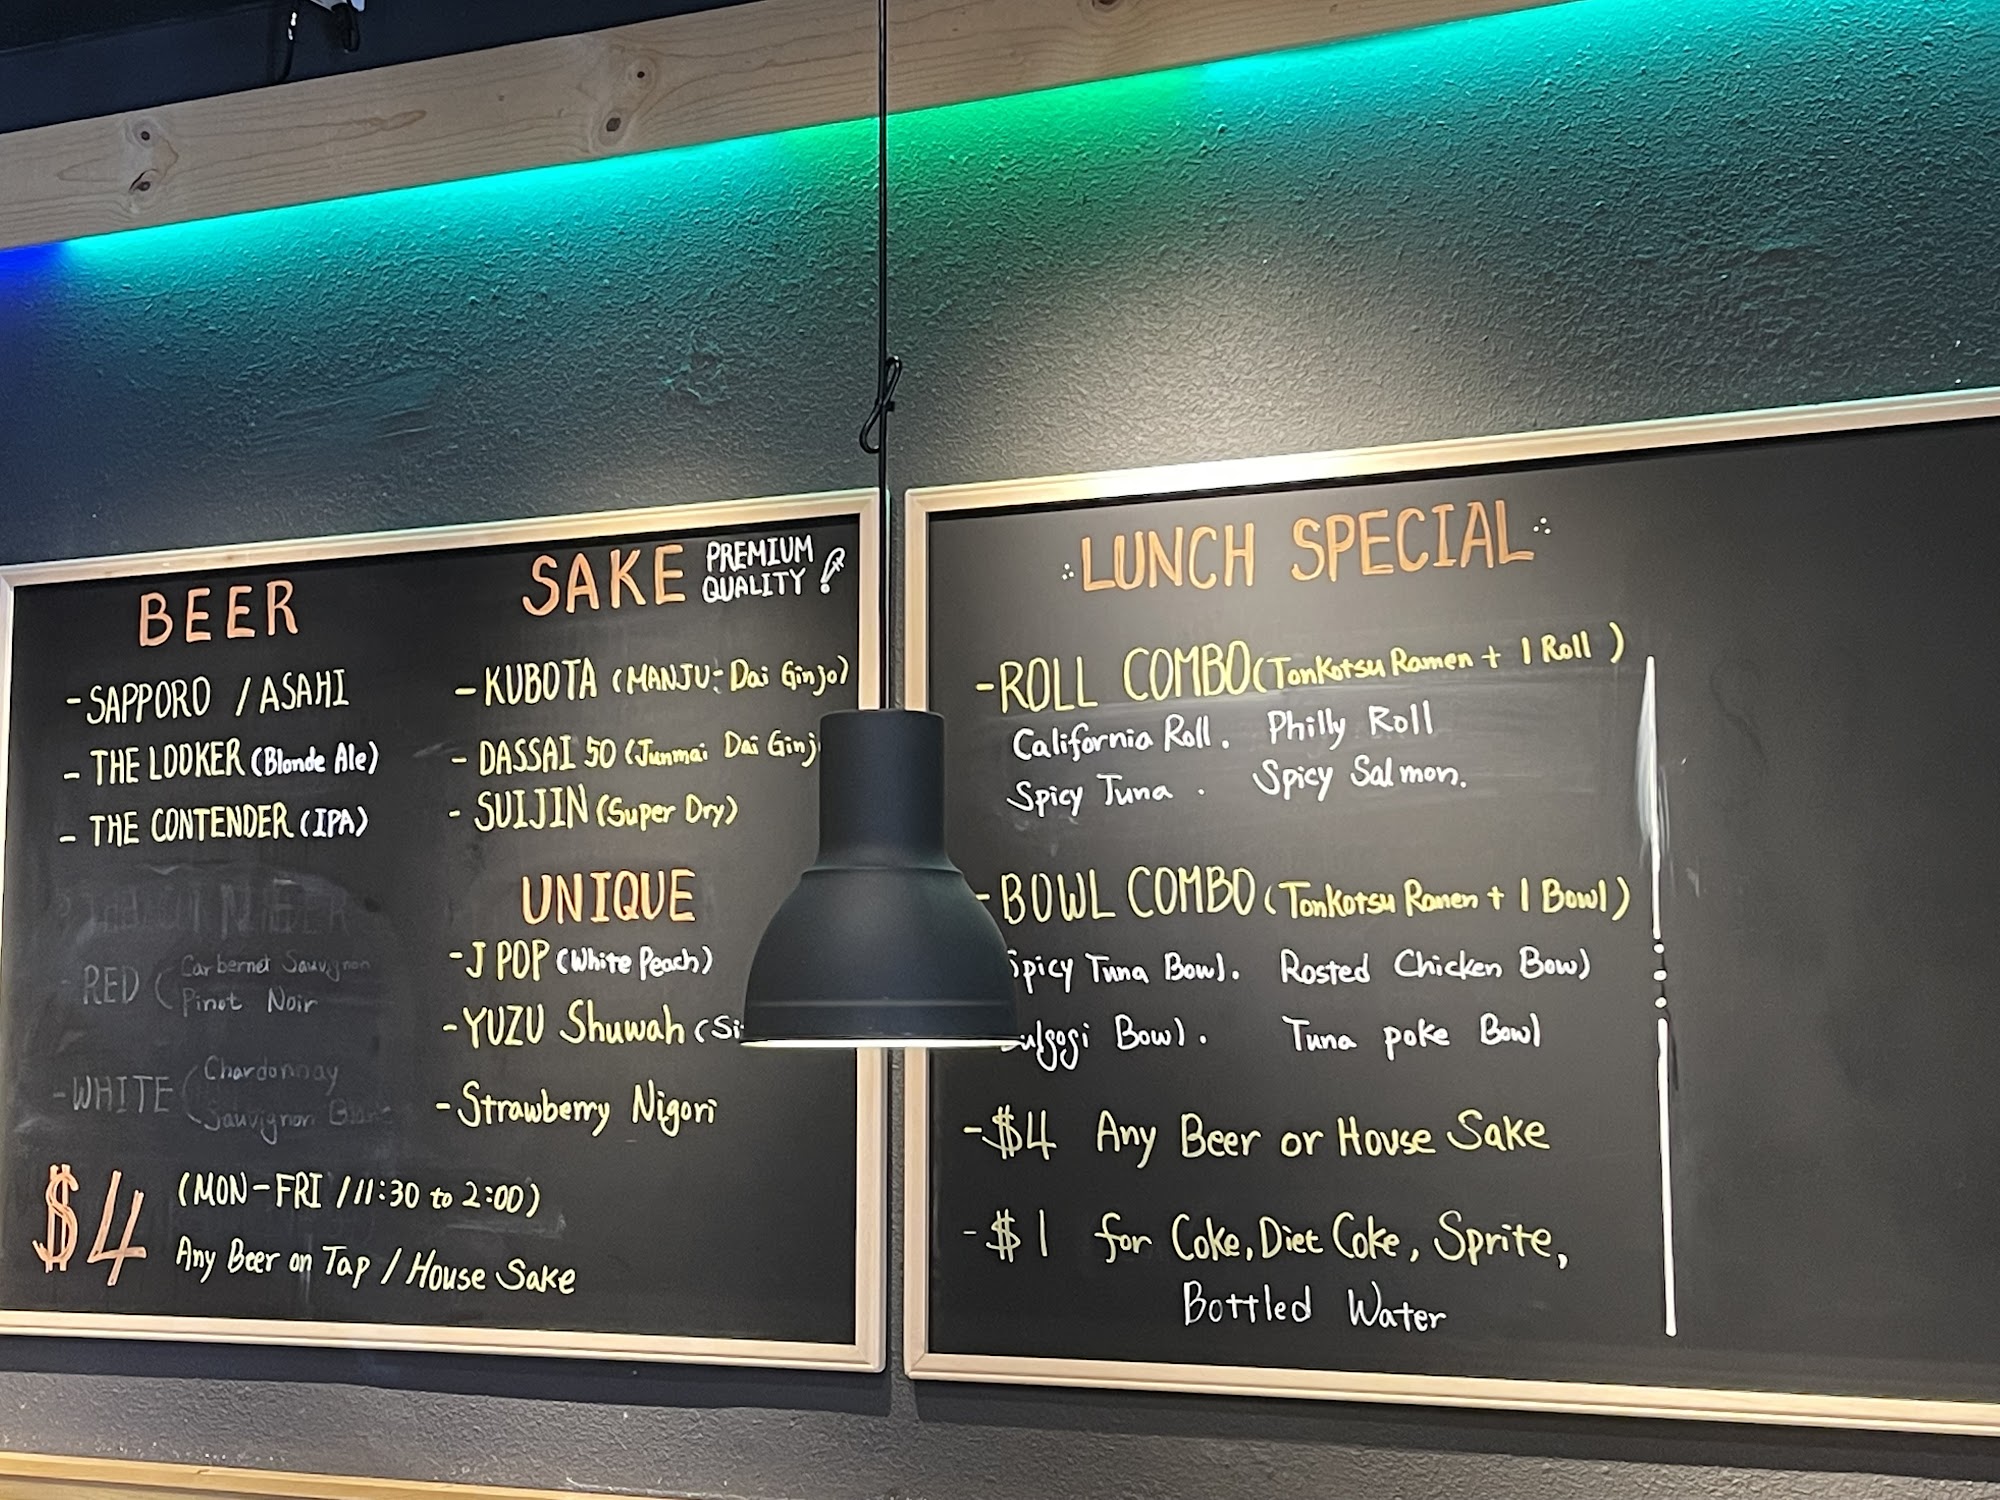 BEER
- SAPPORO / ASAHI
- THE LOOKER (Blonde Ale)
- THE CONTENDER (IPA)
- RED ( Carbernet Sauvignon
Pinot Noir
- WHITE ( Chardonnay
Sauvignon
$4 (MON-FRI / 11:30 to 2:00)
Any Beer on Tap / House Sake
SAKE PREMIUM
QUALITY !
- KUBOTA (MANJU: Dai Ginjo)
- DASSAI 50 (Junmai Dai Ginj
- SUIJIN (Super Dry)
UNIQUE
- J POP (White Peach)
- YUZU Shuwah (
- Strawberry Nigori
LUNCH SPECIAL
- ROLL COMBO (Tonkotsu Ramen + 1 Roll)
California Roll. Philly Roll
Spicy Tuna . Spicy Salmon.
- BOWL COMBO (Tonkotsu Ramen + 1 Bowl)
Spicy Tuna Bowl. Rosted Chicken Bowl
Bulgogi Bowl. Tuna poke Bowl
- $4 Any Beer or House Sake
- $1 for Coke, Diet Coke, Sprite,
Bottled Water